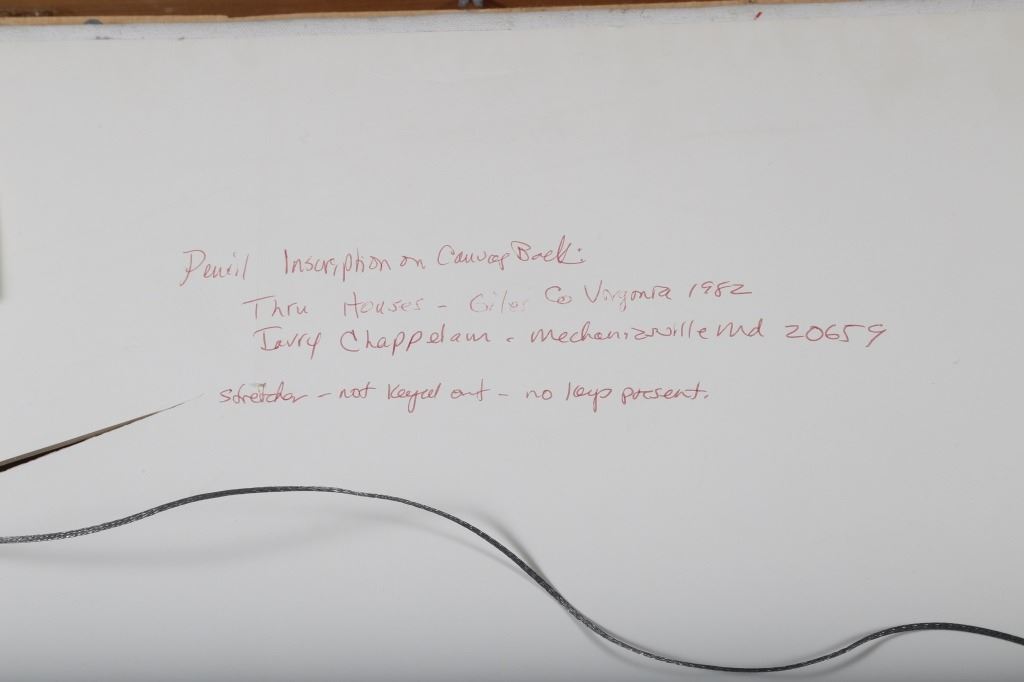 Pencil Inscription on Canvas Back:
Thru Houses - Giles Co Virginia 1982
Chappelam . Mechanicsville Md 20659
stretcher - not keyed out - no keys present.